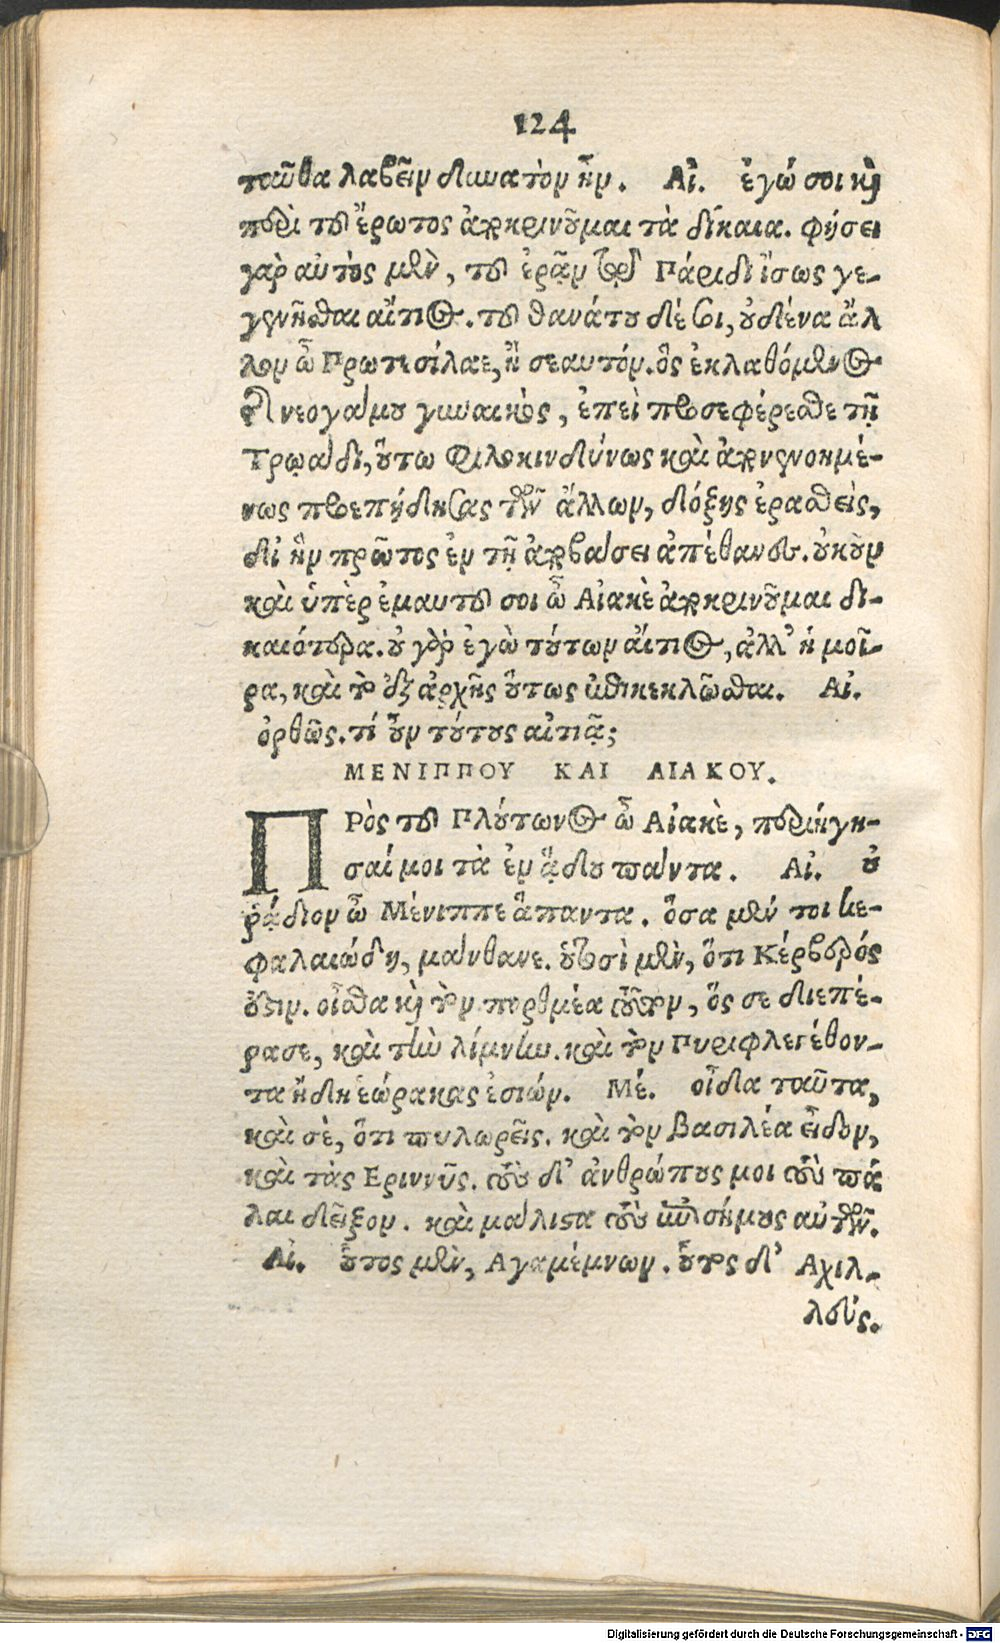 124
ταῦθα λαβεῖν δυνατὸν ἦν. Αἰ. ἐγώ σοι καὶ
περὶ τοῦ ἔρωτος ἀποκρινοῦμαι τὰ δίκαια. φήσει
γὰρ αὐτὸς μὲν, τοῦ ἐρᾷν τῷ Πάριδι ἴσως γε-
γενῆσθαι αἴτιος. τοῦ θανάτου δέ σοι, οὐδένα ἄλ
λον ὦ Πρωτεσίλαε, ἢ σεαυτόν. ὃς ἐκλαθόμενος
τῆς νεογάμου γυναικὸς, ἐπεὶ προσεφέρεσθε τῇ
Τρῳάδι, οὕτω φιλοκινδύνως καὶ ἀπονενοημέ-
νως προεπήδησας τῶν ἄλλων, δόξης ἐρασθεὶς,
δι' ἣν πρῶτος ἐν τῇ ἀποβάσει ἀπέθανες. οὐκοῦν
καὶ ὑπὲρ ἐμαυτοῦ σοι ὦ Αἰακὲ ἀποκρινοῦμαι δι-
καιότερα. οὐ γὰρ ἐγὼ τούτων αἴτιος, ἀλλ' ἡ μοῖ-
ρα, καὶ τὸ ἐξ ἀρχῆς οὕτως ἐπικεκλῶσθαι. Αἰ.
ὀρθῶς. τί οὖν τούτους αἰτιᾷ;
ΜΕΝΙΠΠΟΥ ΚΑΙ ΑΙΑΚΟΥ.
ΠΡὸς τοῦ Πλούτωνος ὦ Αἰακὲ, περιήγη-
σαί μοι τὰ ἐν ᾅδου πάντα. Αἰ. οὐ
ῥᾴδιον ὦ Μένιππε ἅπαντα. ὅσα μέν τοι κε-
φαλαιώδη, μάνθανε. οὑτοσὶ μὲν, ὅτι Κέρβερός
ἐστιν. οἶσθα καὶ τὸν πορθμέα τοῦτον, ὅς σε διεπέ-
ρασε, καὶ τὴν λίμνην. καὶ τὸν Πυριφλεγέθον-
τα ἤδη ἑώρακας ἐσιών. Μέ. οἶδα ταῦτα,
καὶ σὲ, ὅτι πυλωρεῖς. καὶ τὸν βασιλέα εἶδον,
καὶ τὰς Εριννῦς. τοὺς δ' ἀνθρώπους μοι τοὺς πά
λαι δεῖξον. καὶ μάλιστα τοὺς ἐπισήμους αὐτῶν.
Αἰ. οὗτος μὲν, Αγαμέμνων. οὗτος δ' Αχιλ-
λεύς.
Digitalisierung gefördert durch die Deutsche Forschungsgemeinschaft - DFG